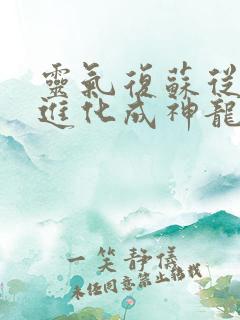 靈氣復蘇從
進化成神龍
一笑靜儀
未经同意禁止转载